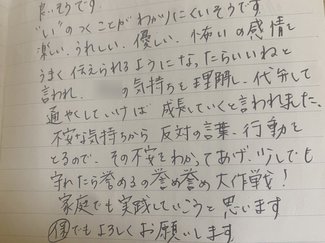 良いそうです
"い"のつくことがわかりにくいそうです
楽しい、うれしい、優しい、悔いの感情も
うまく伝えられるようになったらいいねと
言われ、 の気持ちも理解し、代弁して
通やくしていけば 成長していくと言われました、
不安な気持ちから 反対の言葉、行動を
とるので、その不安をわかってあげ、少しでも
守れたら誉めるの誉め誉め大作戦!
家庭でも実践していこうと思います
でもよろしくお願いします